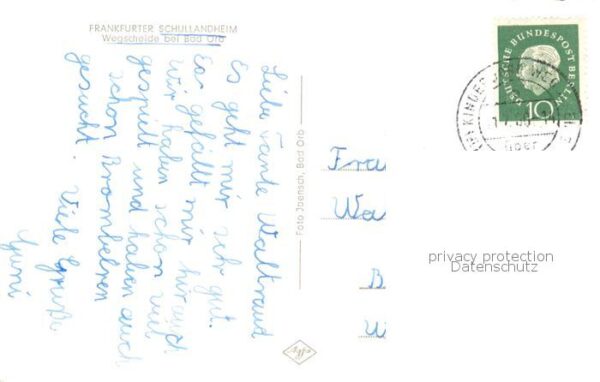 FRANKFURTER SCHULLANDHEIM
Wegscheide bei Bad Orb
Liebe Tante Waltraud
Es geht mir sehr gut.
Es gefällt mir hir und
wir haben schon viel
gespielt und haben auch
schon Brombeeren
gesucht. Viele Grüße
Foto Jaensch, Bad Orb
Agfa
Fra
Wa
B
W
DEUTSCHE BUNDESPOST BERLIN
10
KINDER
über
privacy protection
Datenschutz